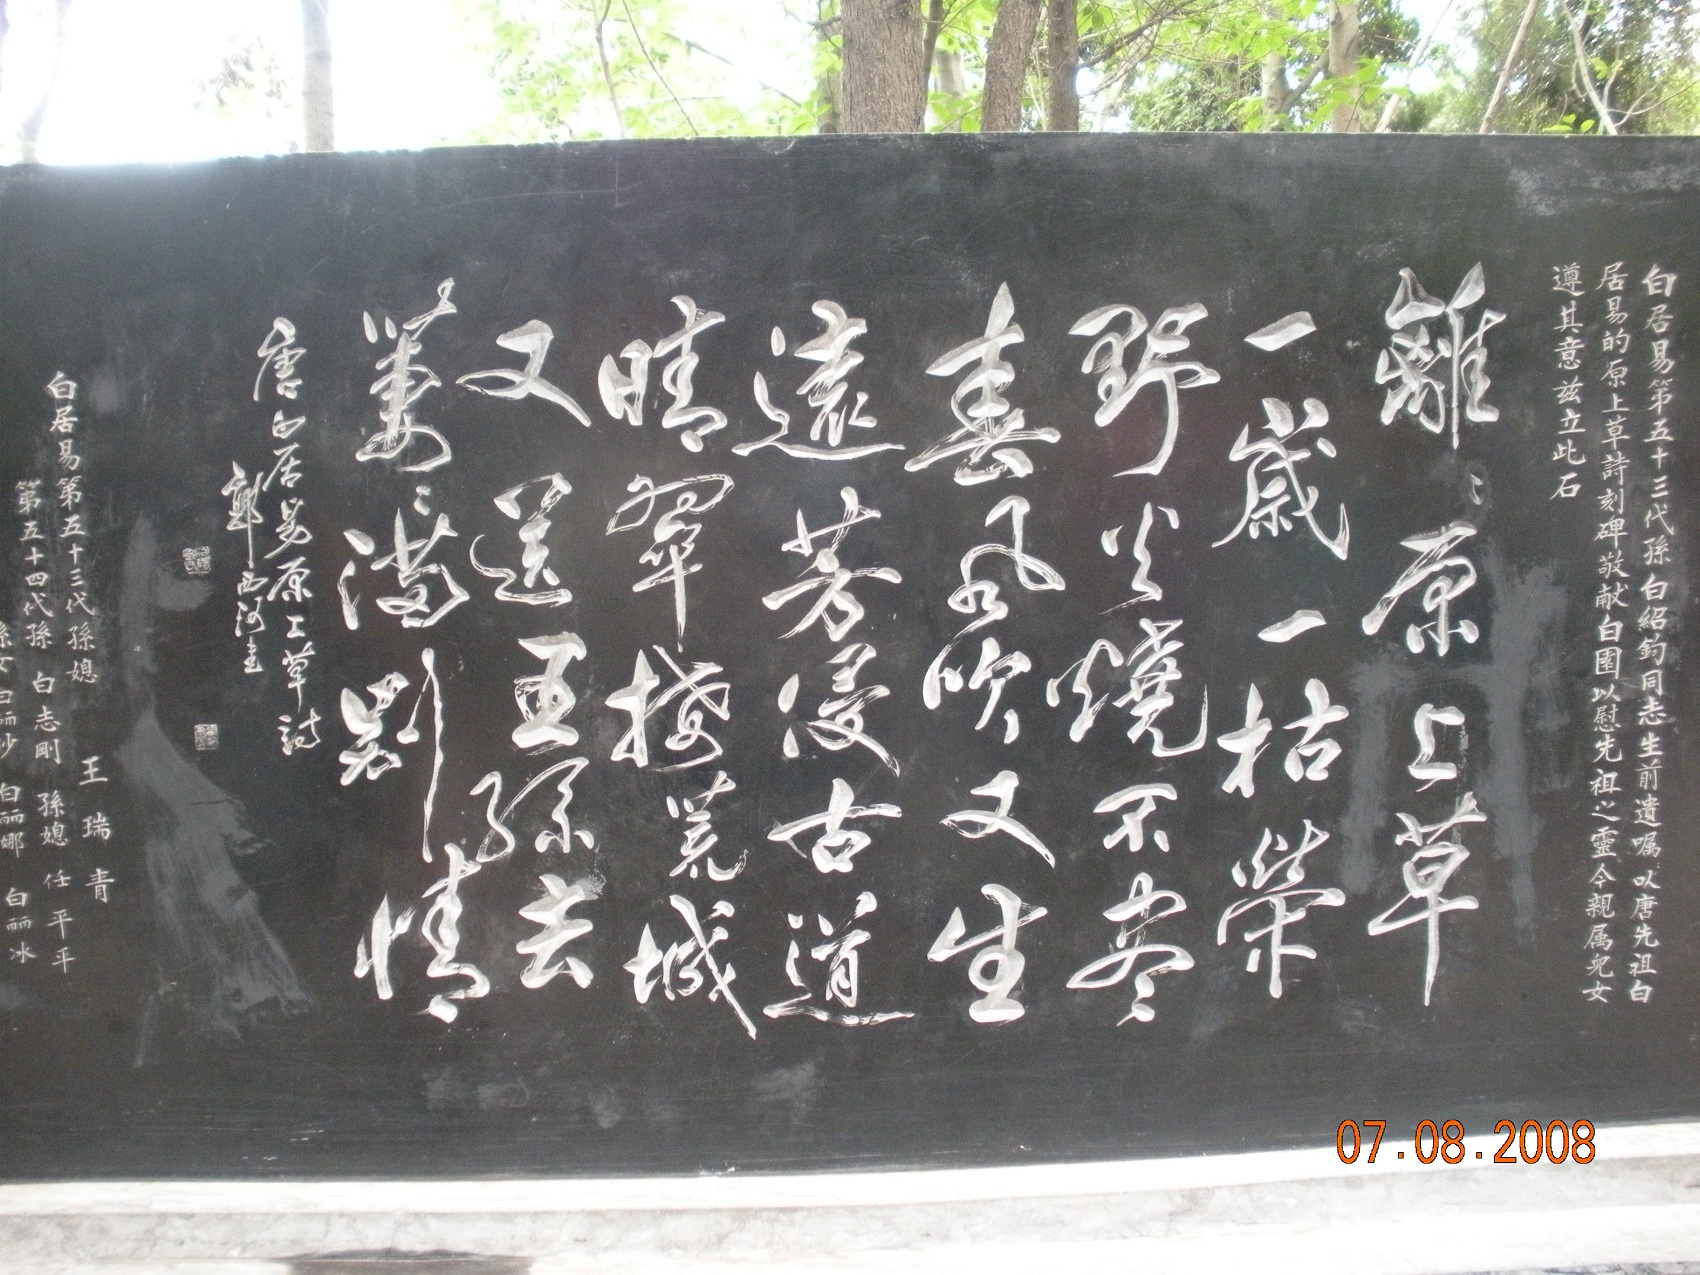 白居易第五十三代孫白紹鈞同志生前遺嘱以唐先祖白
居易的原上草詩刻碑敬献白園以慰先祖之靈今親属兒女
遵其意兹立此石
離〻原上草
一歲一枯榮
野火燒不盡
春風吹又生
遠芳侵古道
晴翠接荒城
又送王孫去
萋〻滿別情
唐白居易原上草詩
鄭西河書
王瑞青
白居易第五十三代孫媳
第五十四代孫 白志剛 孫媳 任平平
孫女 白丽沙 白丽娜 白丽冰
07.08.2008